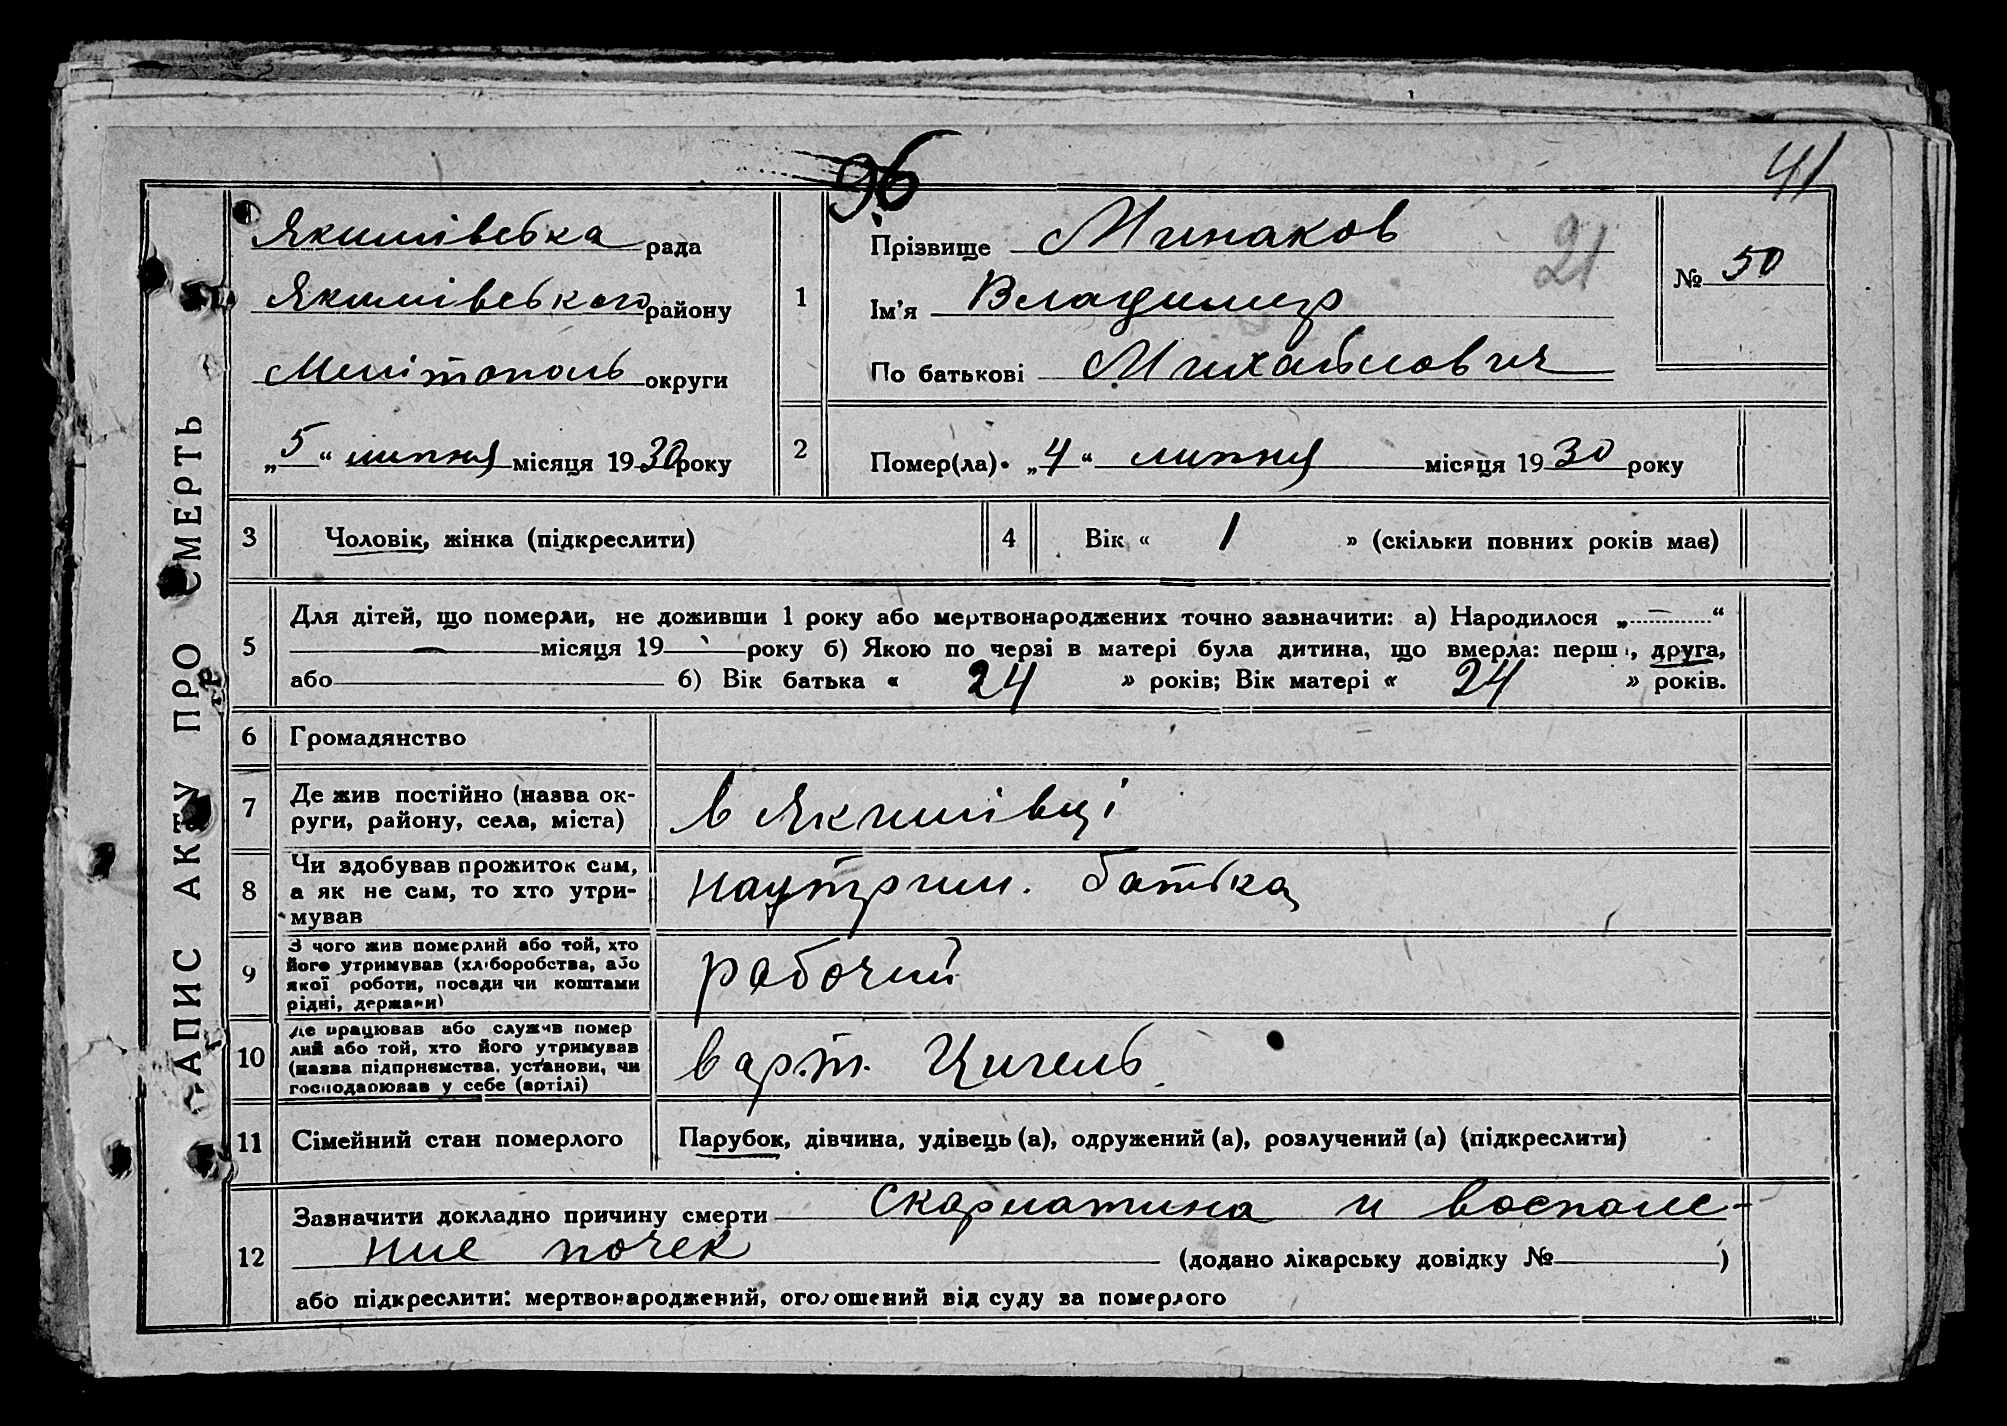 96
41
21
ЗАПИС АКТУ ПРО СМЕРТЬ
Якимівська рада
Якимівського району
Мелітополь округи
„5“ липня місяця 1930 року
1
Прізвище Минаков
Ім'я Владимир
По батькові Михайлович
№ 50
2
Помер(ла) „4“ липня місяця 1930 року
3 Чоловік, жінка (підкреслити)
4 Вік « 1 » (скільки повних років має)
5
Для дітей, що померли, не доживши 1 року або мертвонароджених точно зазначити: а) Народилося „—“
— місяця 19 року б) Якою по черзі в матері була дитина, що вмерла: перш , друга,
або б) Вік батька « 24 » років; Вік матері « 24 » років.
6 Громадянство
7
Де жив постійно (назва ок-
руги, району, села, міста)
в Якимівці
8
Чи здобував прожиток сам,
а як не сам, то хто утри-
мував
наутрим. батька
9
З чого жив померлий або той, хто
його утримував (хліборобства, або
якої роботи, посади чи коштами
рідні, держави)
рабочий
10
Де працював або служив помер
лий або той, хто його утримував
(назва підприємства, установи, чи
господарював у себе (артілі)
в арт. Цигель
11 Сімейний стан померлого
Парубок, дівчина, удівець (а), одружений (а), розлучений (а) (підкреслити)
12
Зазначити докладно причину смерти скарлатина и воспале-
ние почек (додано лікарську довідку № )
або підкреслити: мертвонароджений, оголошений від суду за померлого